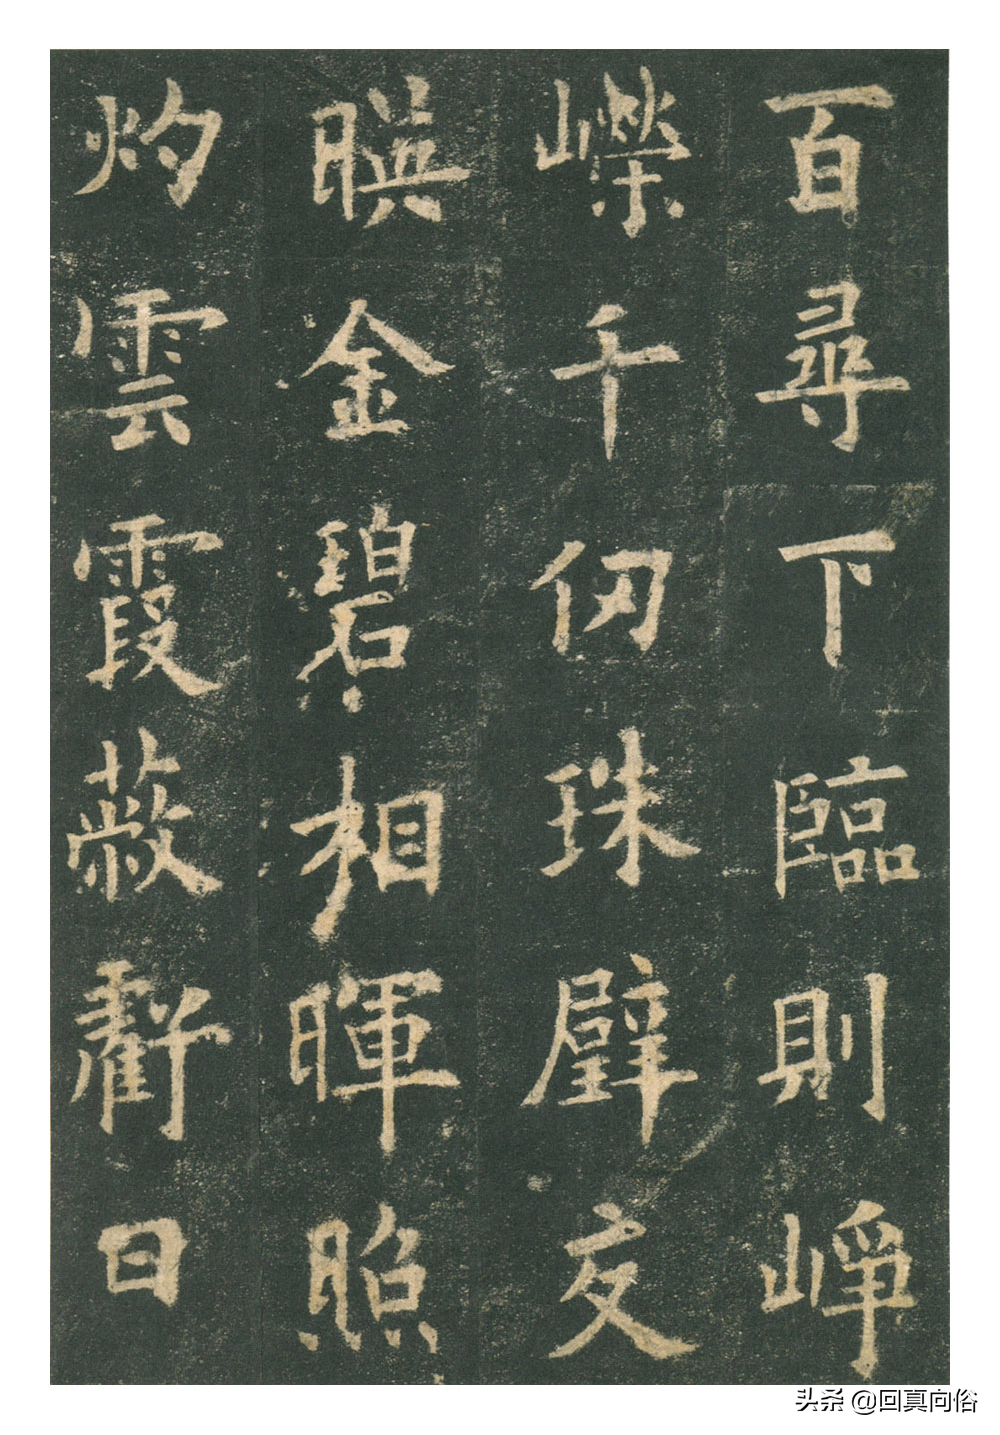 百尋下臨則崢
嶸千仞珠璧交
暎金碧相暉照
灼雲霞蔽虧日
头条 @回真向俗